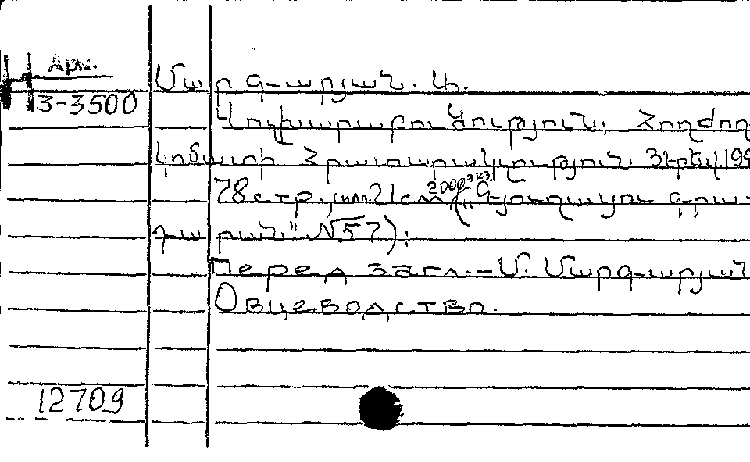 Арм.
3-3500
Մարգարյան. Մ.
Ոչխարաբուծություն. Հողժող
կոմատի Հրատարակչություն. Յերեվ. 19
78стр., илл. 21см. 3000 экз. (,,Գյուղատը. գրա
դարան" №57):
Перед загл.-Մ. Մարգարյան
Овцеводство.
12709